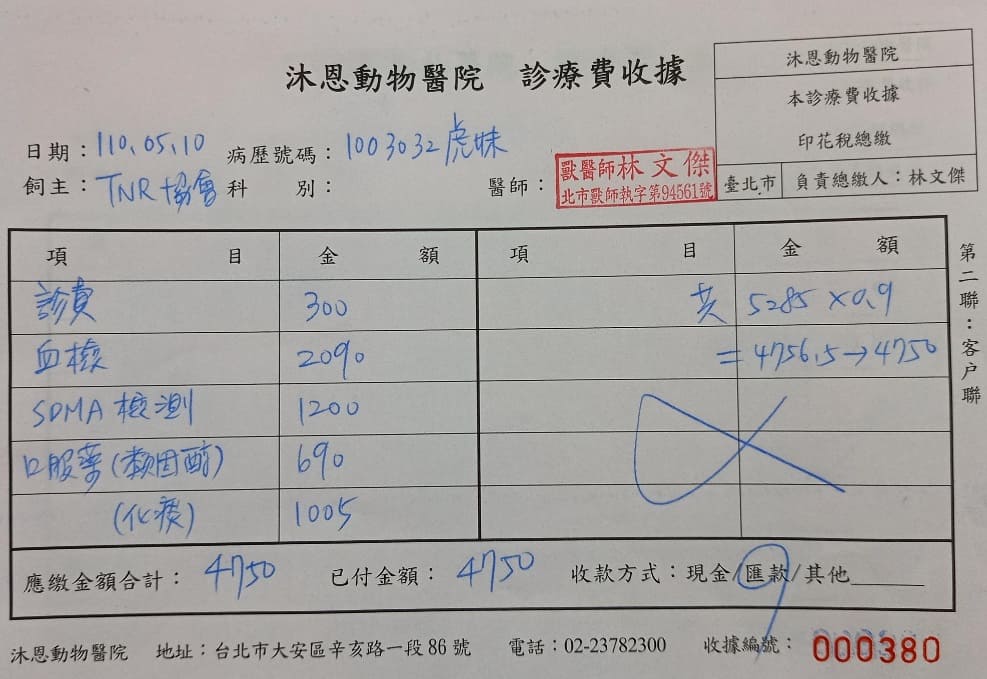 沐恩動物醫院 診療費收據
沐恩動物醫院
本診療費收據
印花稅總繳
臺北市 負責總繳人：林文傑
日期：110.05.10 病歷號碼：1003032虎妹
飼主：TNR協會 科 別： 醫師：
獸醫師林文傑
北市獸師執字第94561號
項 目 金 額 項 目 金 額
診費 300 共 5285×0.9
血檢 2090 =4756.5→4750
SDMA檢測 1200
口服藥(類固醇) 690
(化痰) 1005
應缴金額合計：4750 已付金額：4750 收款方式：現金/匯款/其他______
第二聯：客户聯
沐恩動物醫院 地址：台北市大安區辛亥路一段86號 電話：02-23782300 收據編號：000380